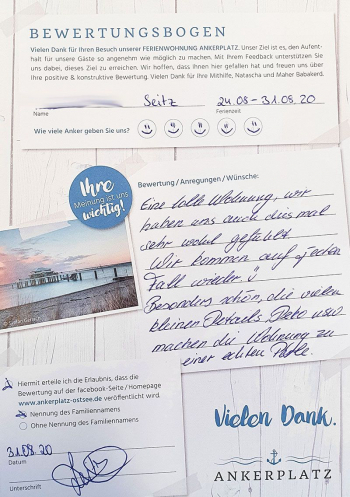 BEWERTUNGSBOGEN
Vielen Dank für Ihren Besuch unserer FERIENWOHNUNG ANKERPLATZ. Unser Ziel ist es, den Aufent-
halt für unsere Gäste so angenehm wie möglich zu machen. Mit Ihrem Feedback unterstützen Sie
uns dabei, dieses Ziel zu erreichen. Wir hoffen, dass Ihnen hier gefallen hat und freuen uns über
Ihre positive & konstruktive Bewertung. Vielen Dank für Ihre Mithilfe, Natascha und Maher Babakerd.
Seitz 24.08-31.08.20
Name Ferienzeit
Wie viele Anker geben Sie uns?
Ihre
Meinung ist uns
wichtig!
Bewertung / Anregungen / Wünsche:
Eine tolle Wohnung, wir
haben uns auch dies mal
sehr wohl gefühlt.
Wir kommen auf jeden
Fall wieder.
Besonders schön, die vielen
kleinen Details. Deko usw
machen die Wohnung zu
einer echten Perle.
Hiermit erteile ich die Erlaubnis, dass die
Bewertung auf der facebook-Seite / Homepage
www.ankerplatz-ostsee.de veröffentlicht wird.
x Nennung des Familiennamens
Ohne Nennung des Familiennamens
31.08.20
Datum
Unterschrift
Vielen Dank.
ANKERPLATZ